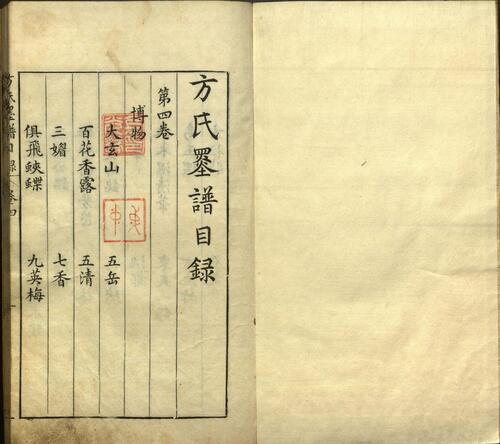 方氏墨譜目録
第四卷
博物
大玄山 五岳
百花香露 五清
三媚 七香
俱飛蛺蝶 九英梅
方氏墨譜目録 卷四